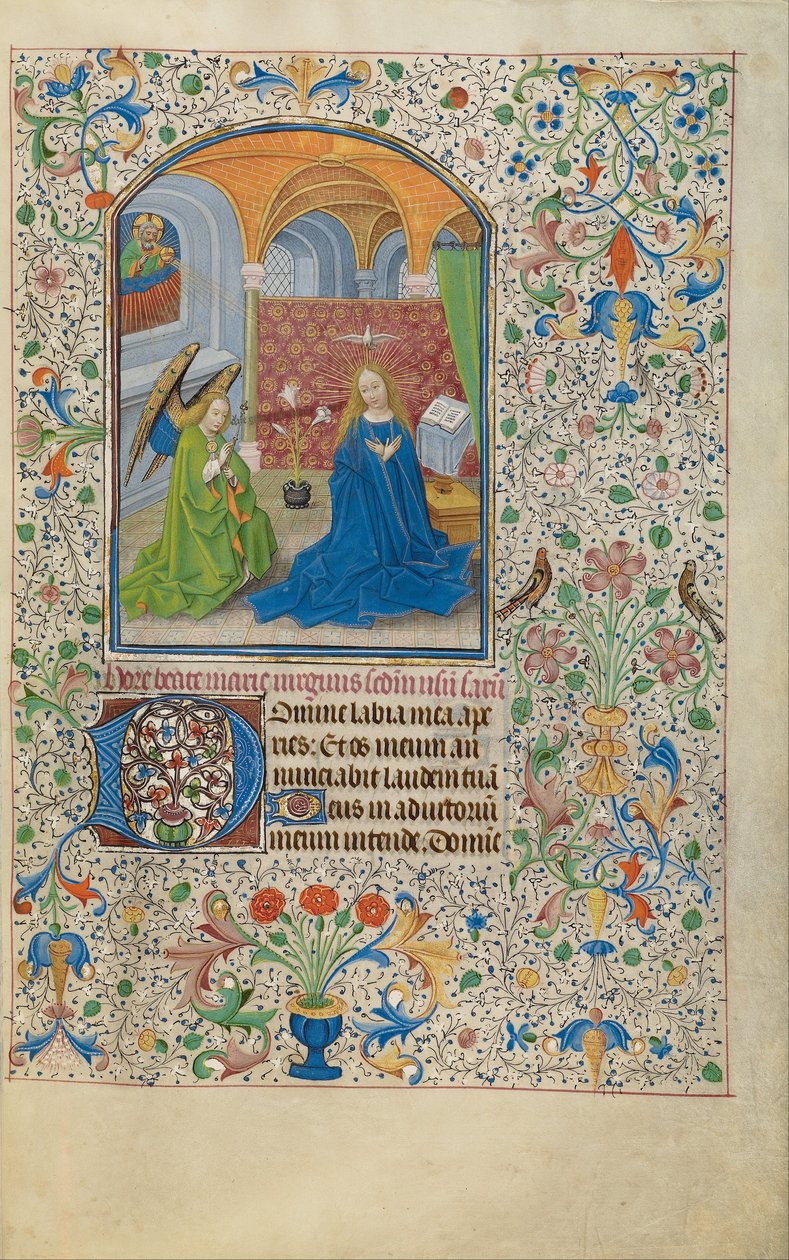 hore beate marie uirginis sedm usu saru
Domine labia mea ape
ries: Et os meum an
nunciabit laudem tuā
Deus in adiutoriū
meum intende. Domīe